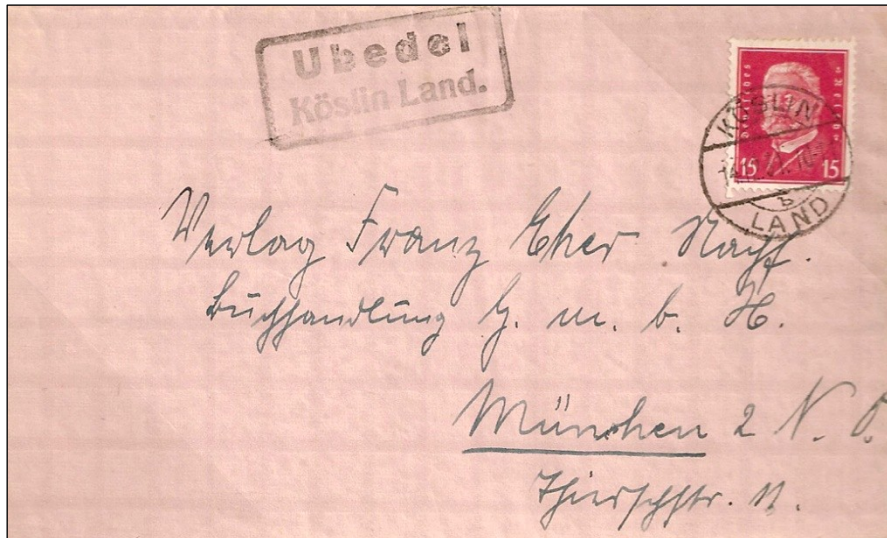 Ubedel
Köslin Land.
DEUTSCHES REICH
15 15
KÖSLIN
b
LAND
Verlag Franz Eher Nachf.
Buchhandlung G. m. b. H.
München 2 N. O.
Thierschstr. 11.